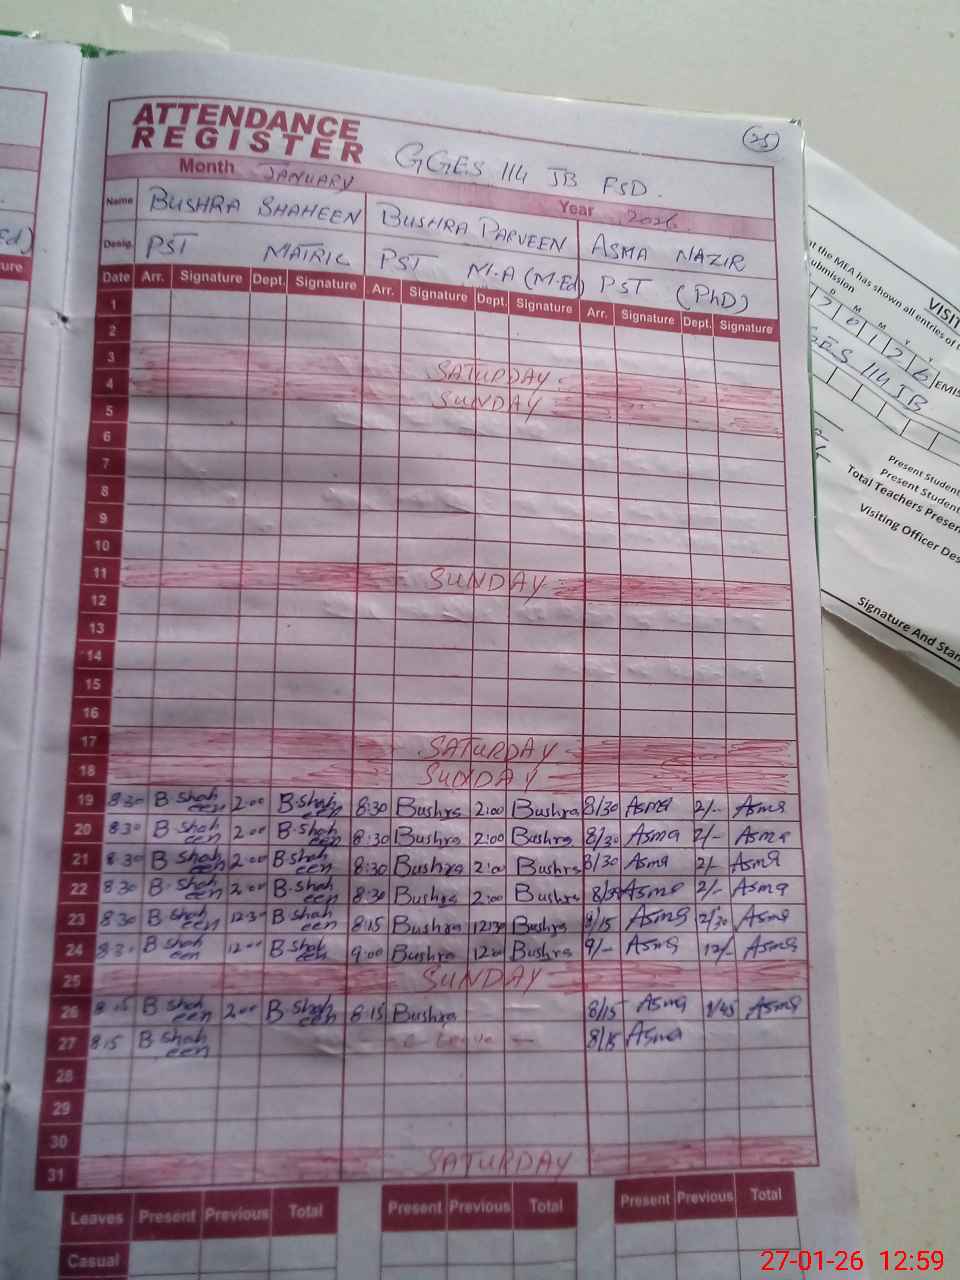 ATTENDANCE
REGISTER
GGES 114 JB FSD.
25
Month JANUARY
Year 2026
Name BUSHRA SHAHEEN BUSHRA PARVEEN ASMA NAZIR
Desig. PST MATRIC PST M.A (M.Ed) PST (PhD)
Date Arr. Signature Dept. Signature Arr. Signature Dept. Signature Arr. Signature Dept. Signature
1
2
3 SATURDAY
4 SUNDAY
5
6
7
8
9
10
11 SUNDAY
12
13
14
15
16
17 SATURDAY
18 SUNDAY
19 8:30 B.Shaheen 2:00 B.Shaheen 8:30 Bushra 2:00 Bushra 8/30 Asma 2/- Asma
20 8:30 B.Shaheen 2:00 B.Shaheen 8:30 Bushra 2:00 Bushra 8/30 Asma 2/- Asma
21 8:30 B.Shaheen 2:00 B.Shaheen 8:30 Bushra 2:00 Bushra 8/30 Asma 2/- Asma
22 8:30 B.Shaheen 2:00 B.Shaheen 8:30 Bushra 2:00 Bushra 8/30 Asma 2/- Asma
23 8:30 B.Shaheen 12:30 B.Shaheen 8:15 Bushra 12:30 Bushra 8/15 Asma Asma
24 8:30 B.Shaheen 12:00 B.Shaheen 9:00 Bushra 12:00 Bushra 9/- Asma 12/- Asma
25 SUNDAY
26 8:15 B.Shaheen 2:00 B.Shaheen 8:15 Bushra 8/15 Asma 1/45 Asma
27 8:15 B.Shaheen Leave 8/15 Asma
28
29
30
31 SATURDAY
Leaves Present Previous Total Present Previous Total Present Previous Total
Casual
VISIT
t the MEA has shown all entries of t
ubmission
GES 114 JB
EMIS
Present Student
Present Student
Total Teachers Presen
Visiting Officer Des
Signature And Stam
27-01-26 12:59